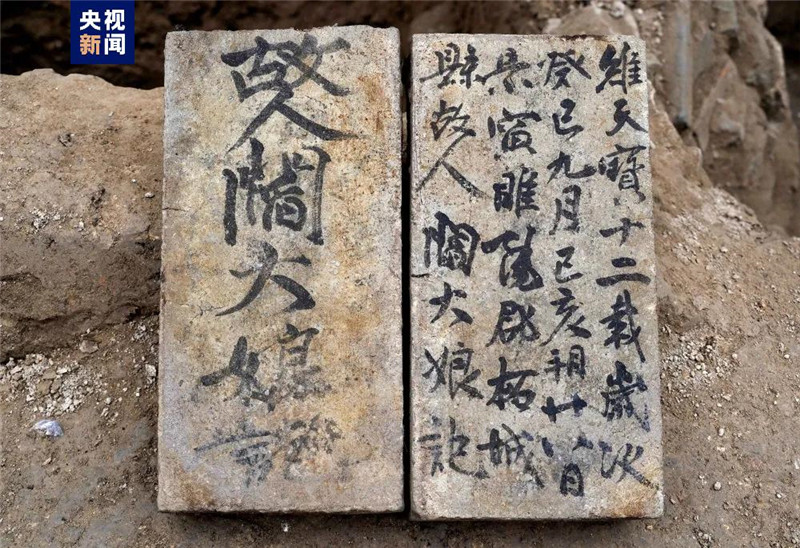 央视
新闻
故人閻大娘
維天寶十二載歲次
癸巳九月己亥朔廿八日
丙寅睢陽郡柘城
縣故人閻大娘記